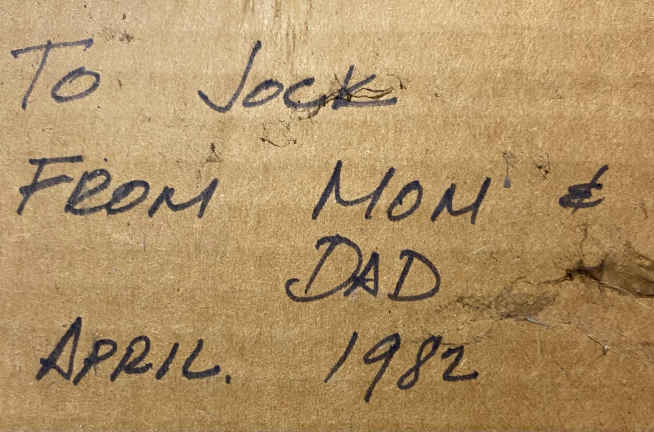 To Jock
FROM MOM &
DAD
APRIL. 1982